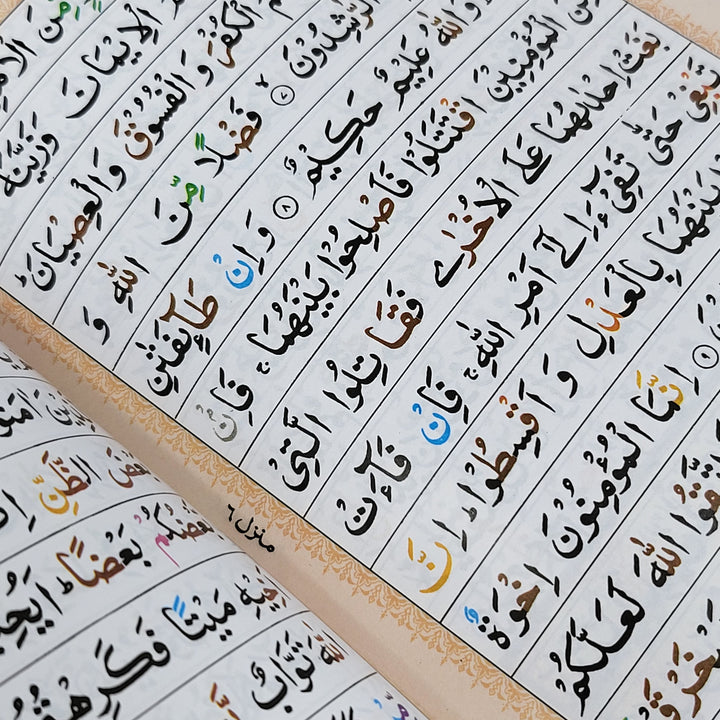 مِّنَ
الْاِيْمَانَ وَزَيَّنَهٗ
الْكُفْرَ وَالْفُسُوْقَ وَالْعِصْيَانَ ؕ
الرّٰشِدُوْنَ ۙ ۷ فَضْلًا مِّنَ اللّٰهِ وَ
وَاللّٰهُ عَلِيْمٌ حَكِيْمٌ ۸ وَاِنْ طَآىِٕفَتٰنِ
مِنَ الْمُؤْمِنِيْنَ اقْتَتَلُوْا فَاَصْلِحُوْا بَيْنَهُمَا ۚ فَاِنْۢ
بَغَتْ اِحْدٰىهُمَا عَلَى الْاُخْرٰى فَقَاتِلُوا الَّتِيْ
تَبْغِيْ حَتّٰى تَفِيْٓءَ اِلٰٓى اَمْرِ اللّٰهِ ۚ فَاِنْ فَآءَتْ
بَيْنَهُمَا بِالْعَدْلِ وَاَقْسِطُوْا ؕ اِنَّ
۹ اِنَّمَا الْمُؤْمِنُوْنَ اِخْوَةٌ
اتَّقُوا اللّٰهَ لَعَلَّكُمْ
منزل ٦
اٰمَنُوا
الظَّنِّ
بَعْضُكُمْ بَعْضًا ؕ
اَخِيْهِ مَيْتًا فَكَرِهْتُمُوْهُ
اللّٰهَ تَوَّابٌ